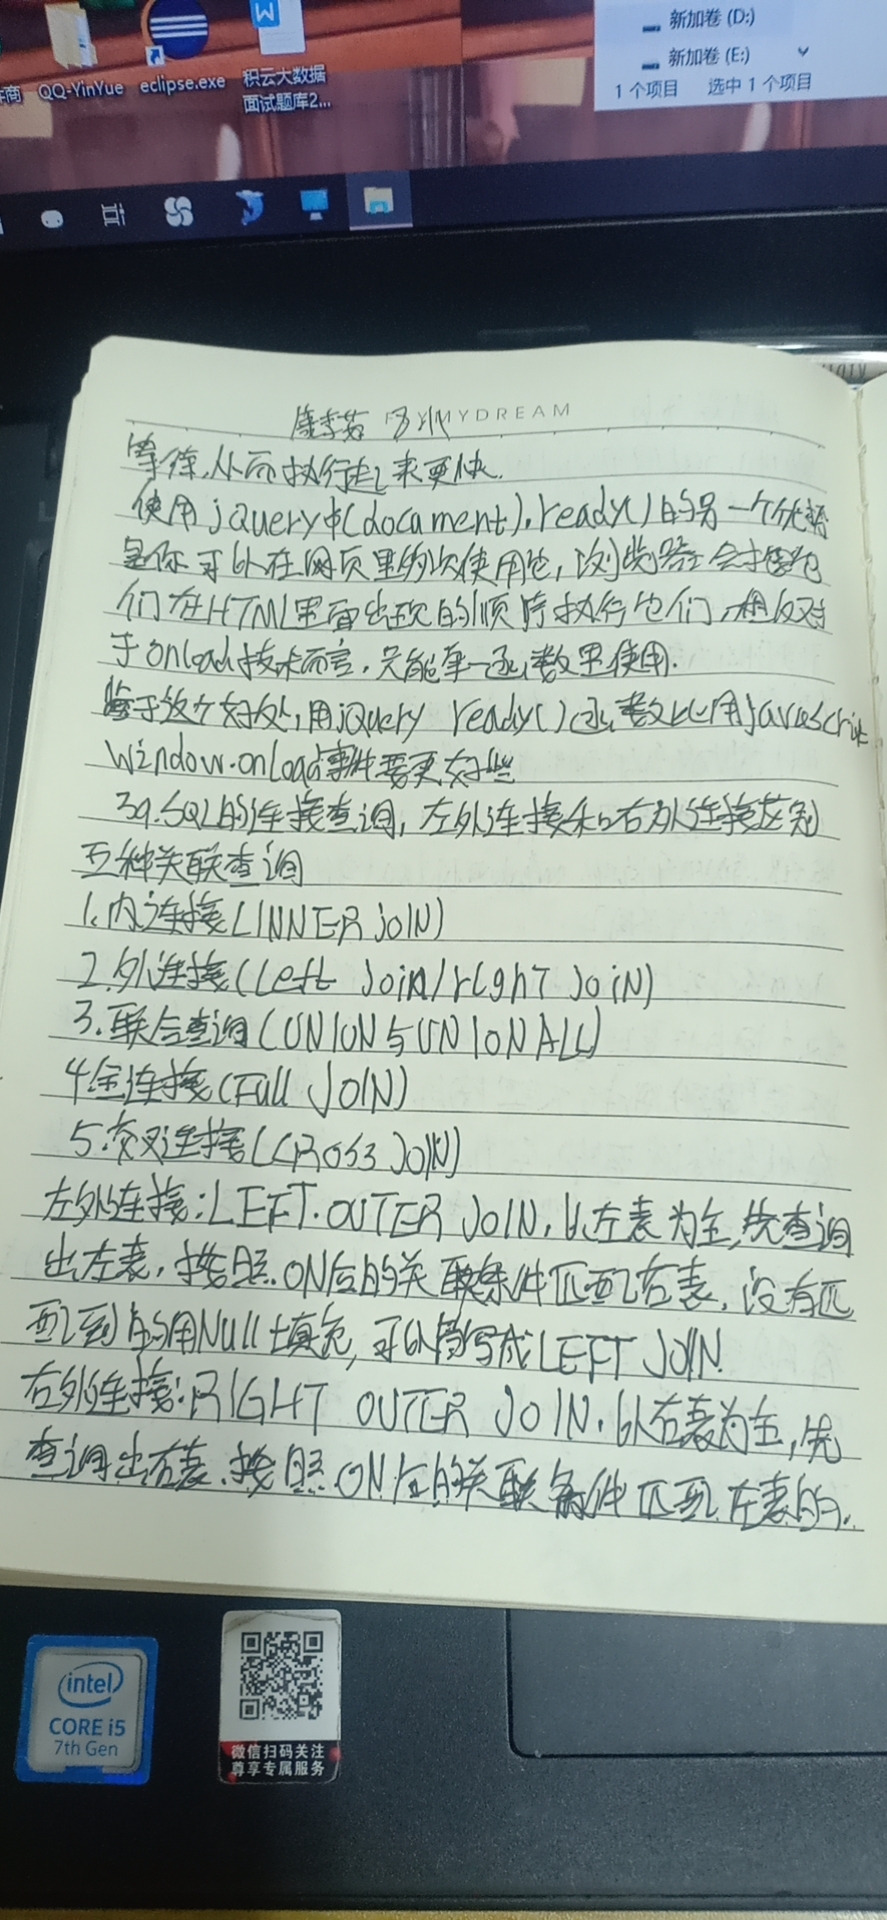 新加卷 (D:)
新加卷 (E:)
1 个项目 选中 1 个项目
QQ-YinYue
eclipse.exe
积云大数据
面试题库2...
MYDREAM
等待,从而执行起来更快.
使用jQuery中(document).ready()的另一个优势
是你可以在网页里多次使用它,浏览器会按它
们在HTML里面出现的顺序执行它们,相反对
于onload技术而言,只能单一函数里使用.
鉴于这个好处,用jQuery ready()函数比用javascript
window.onload事件要更好些
39.SQL的连接查询,左外连接和右外连接区别
五种关联查询
1.内连接(INNER JOIN)
2.外连接(Left JoiN/rIghT JoiN)
3.联合查询(UNION与UNION ALL)
4全连接(Full JOIN)
5.交叉连接(CROSS JOIN)
左外连接:LEFT.OUTER JOIN,以左表为主,先查询
出左表,按照ON后的关联条件匹配右表,没有匹
配到的用Null填充,可以简写成LEFT JOIN
右外连接:RIGHT OUTER JOIN.以右表为主,先
查询出右表.按照ON后的关联条件匹配左表的.
intel
CORE i5
7th Gen
微信扫码关注
尊享专属服务